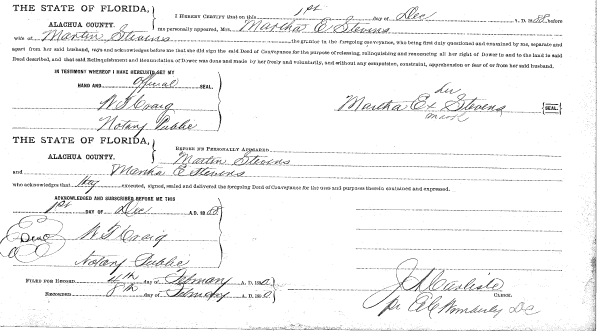 THE STATE OF FLORIDA,
ALACHUA COUNTY.
I HEREBY CERTIFY that on this 1st day of Dec A. D. 18 before
me personally appeared, Mrs. Martha E Stevens
wife of Martin Stevens the grantor in the foregoing conveyance, who being first duly questioned and examined by me, separate and
apart from her said husband, says and acknowledges before me that she did sign the said Deed of Conveyance for the purpose of releasing, relinquishing and renouncing all her right of Dower in and to the land in said
Deed described, and that said Relinquishment and Renunciation of Dower was done and made by her freely and voluntarily, and without any compulsion, constraint, apprehension or fear of or from her said husband.
IN TESTIMONY WHEREOF I HAVE HEREUNTO SET MY
HAND AND official SEAL.
W T Craig
Notary Public
her
Martha E x Stevens SEAL.
mark
THE STATE OF FLORIDA,
ALACHUA COUNTY.
BEFORE ME PERSONALLY APPEARED
Martin Stevens
and Martha E Stevens
who acknowledges that they executed, signed, sealed and delivered the foregoing Deed of Conveyance for the uses and purposes therein contained and expressed.
ACKNOWLEDGED AND SUBSCRIBED BEFORE ME THIS
1st DAY OF Dec A. D. 18
Seal
W T Craig
Notary Public
FILED FOR RECORD day of February A. D. 18
RECORDED 8th day of February A. D. 18
J A Carlisle
CLERK.
pr Wimberly DC